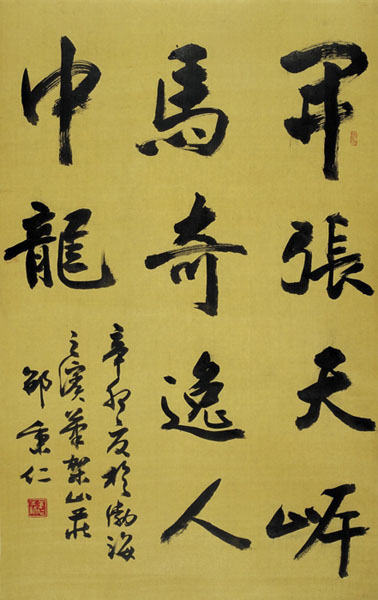 開張天岸
馬奇逸人
中龍
辛卯夏於渤海
之濱筆架山莊
邵秉仁